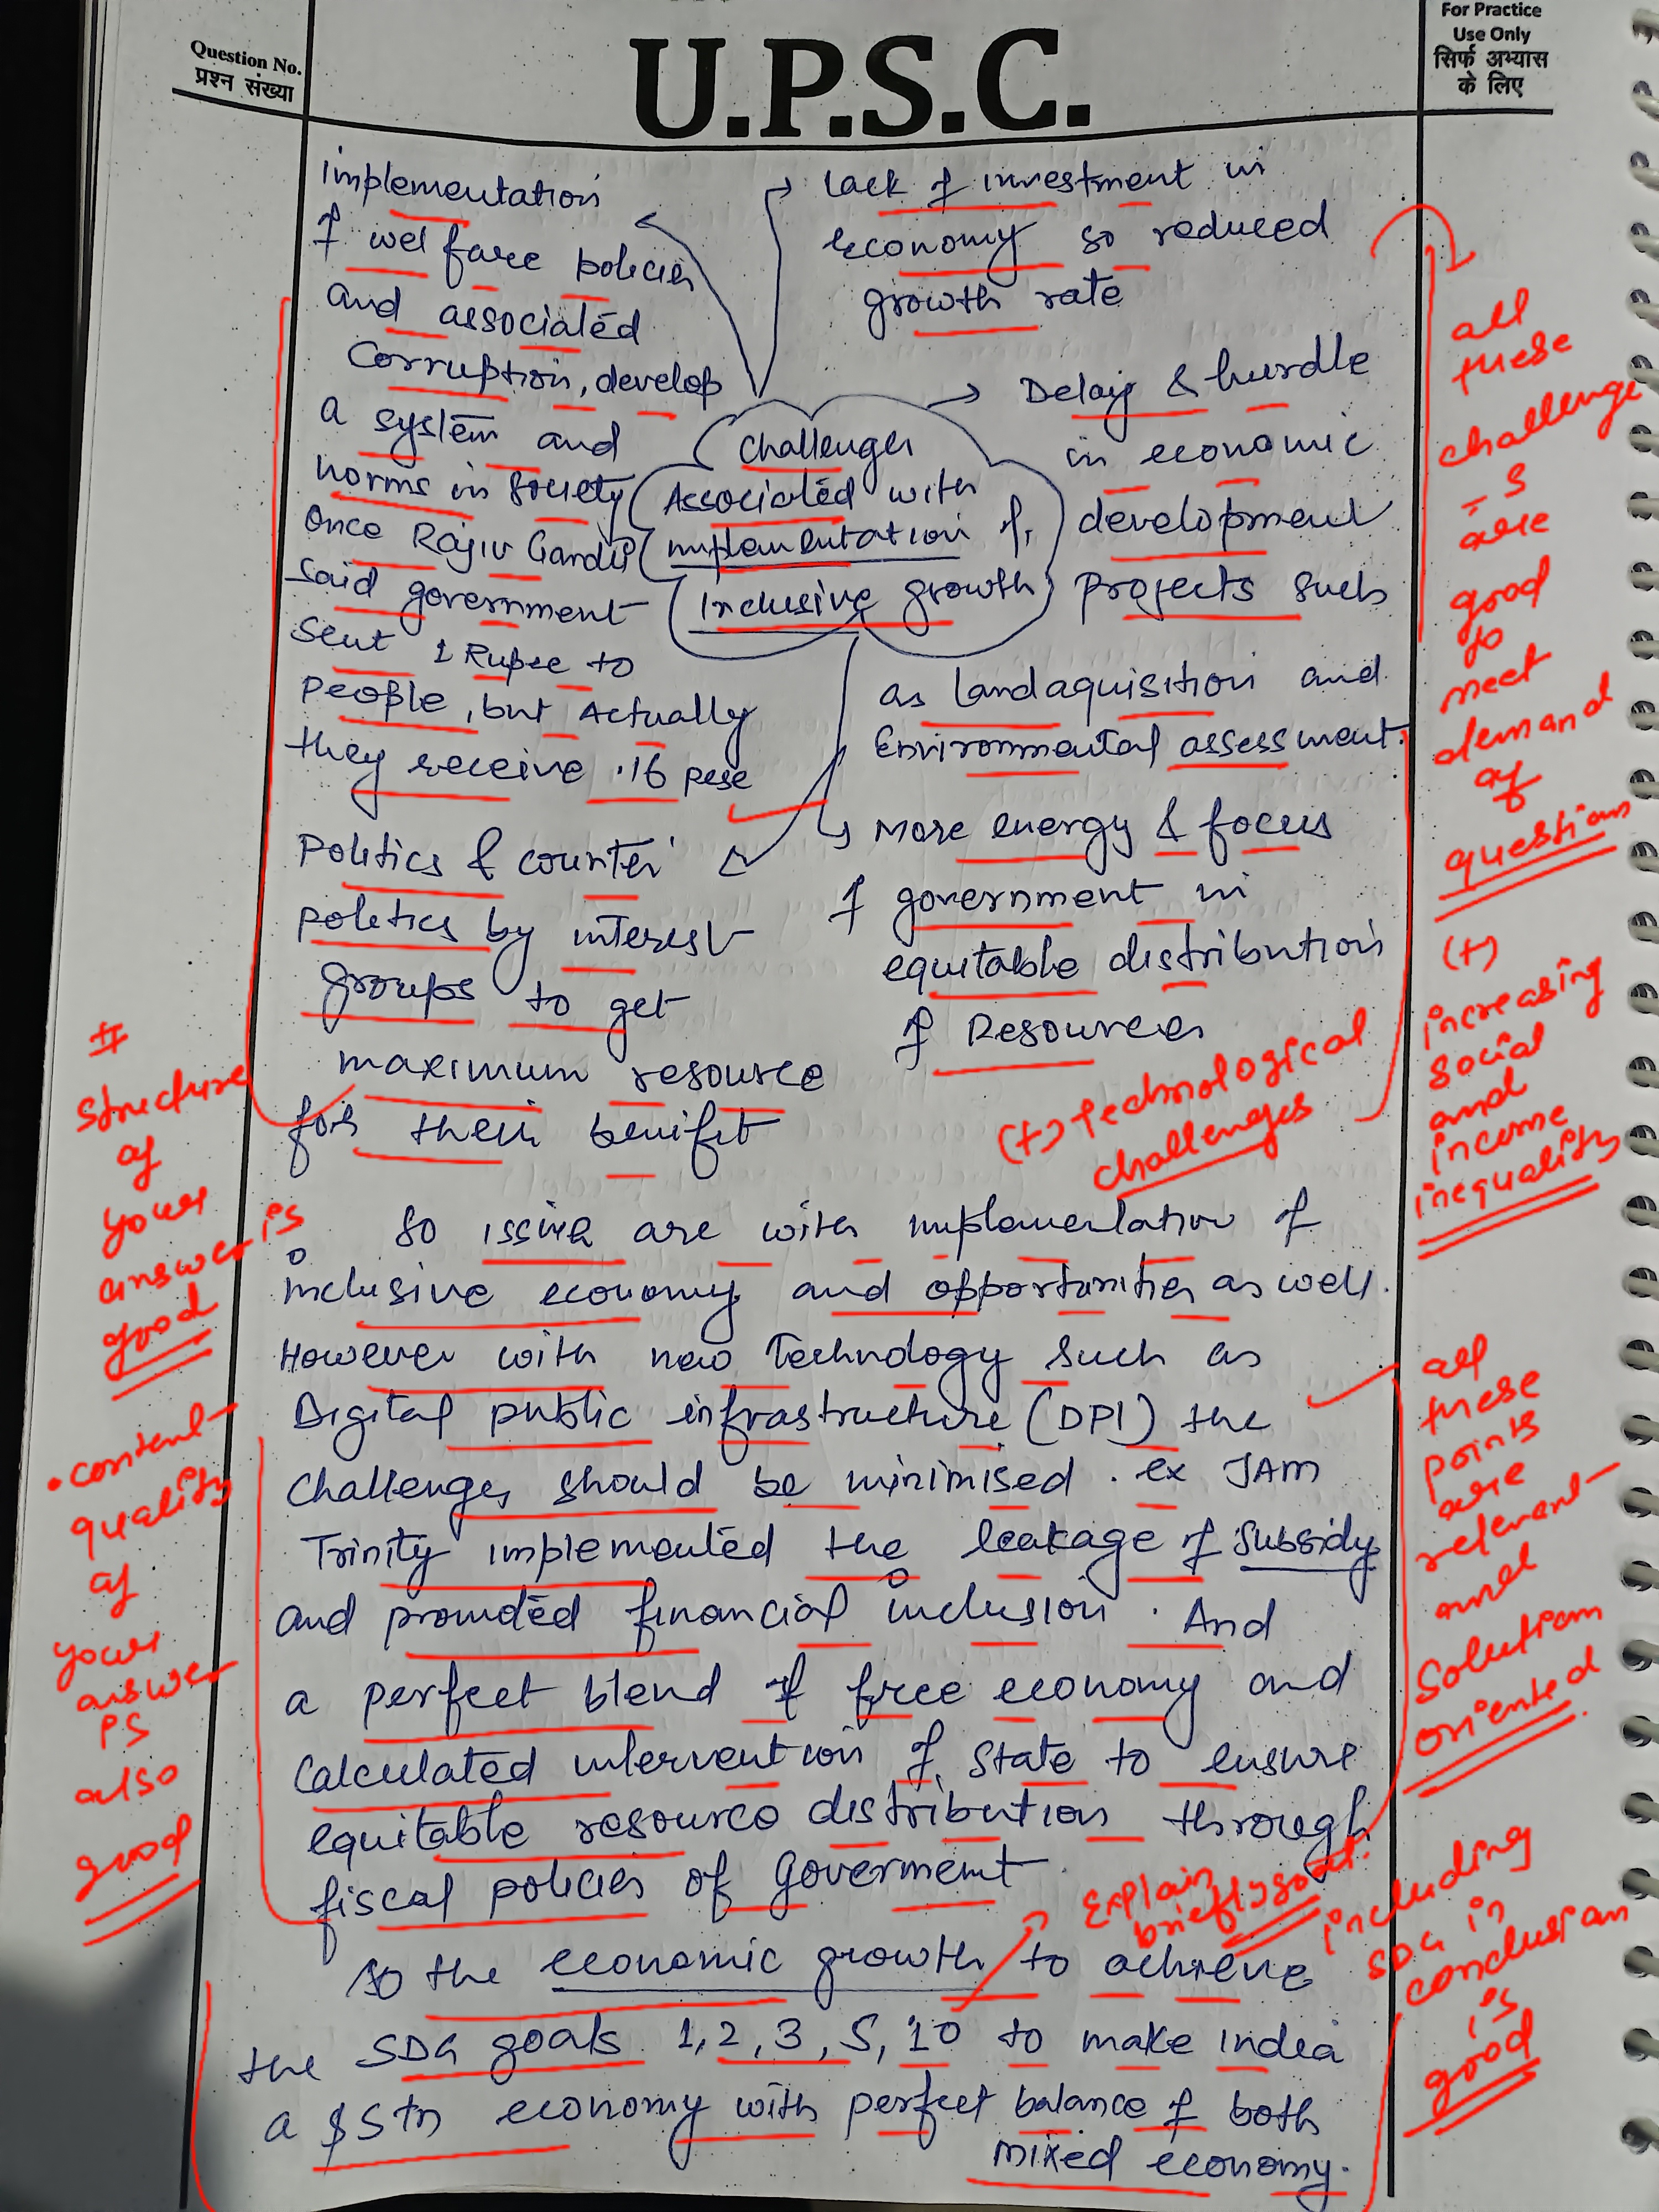 Question No.
प्रश्न संख्या
U.P.S.C.
For Practice
Use Only
सिर्फ अभ्यास
के लिए
implementation
of welfare policies
and associated
corruption, develop
a system and
norms in society
once Rajiv Gandhi
said government
sent 1 Rupee to
people, but Actually
they receive .16 pese
Lack of investment in
economy so reduced
growth rate
Challenges
Associated with
implementation of
Inclusive growth
Delay & hurdle
in economic
development
projects such
as landaquisition and
Environmental assessment.
Politics & counter
politics by interest
groups to get
maximum resource
for their benifit
More energy & focus
of government in
equitable distribution
of Resources
all
these
challenge
s
are
good
to
meet
demand
of
question
(+)
increasing
social
and
income
inequality
(+) Technological
challenges
#
structure
of
your
answer is
good
• content
quality
of
your
answer
is
also
good
So issues are with implementation of
inclusive economy and opportunities as well.
However with new Technology such as
Digital public infrastructure (DPI) the
challenges should be minimised. ex JAM
Trinity implemented the leakage of subsidy
and provided financial inclusion. And
a perfect blend of free economy and
calculated intervention of State to ensure
equitable resource distribution through
fiscal policies of Goverment.
all
these
points
are
relevant
and
solution
oriented
Explain
briefly
So the economic growth to achieve
the SDG goals 1,2,3,5,10 to make India
a $5tn economy with perfect balance of both
mixed economy.
including
SDG in
conclusion
is
good